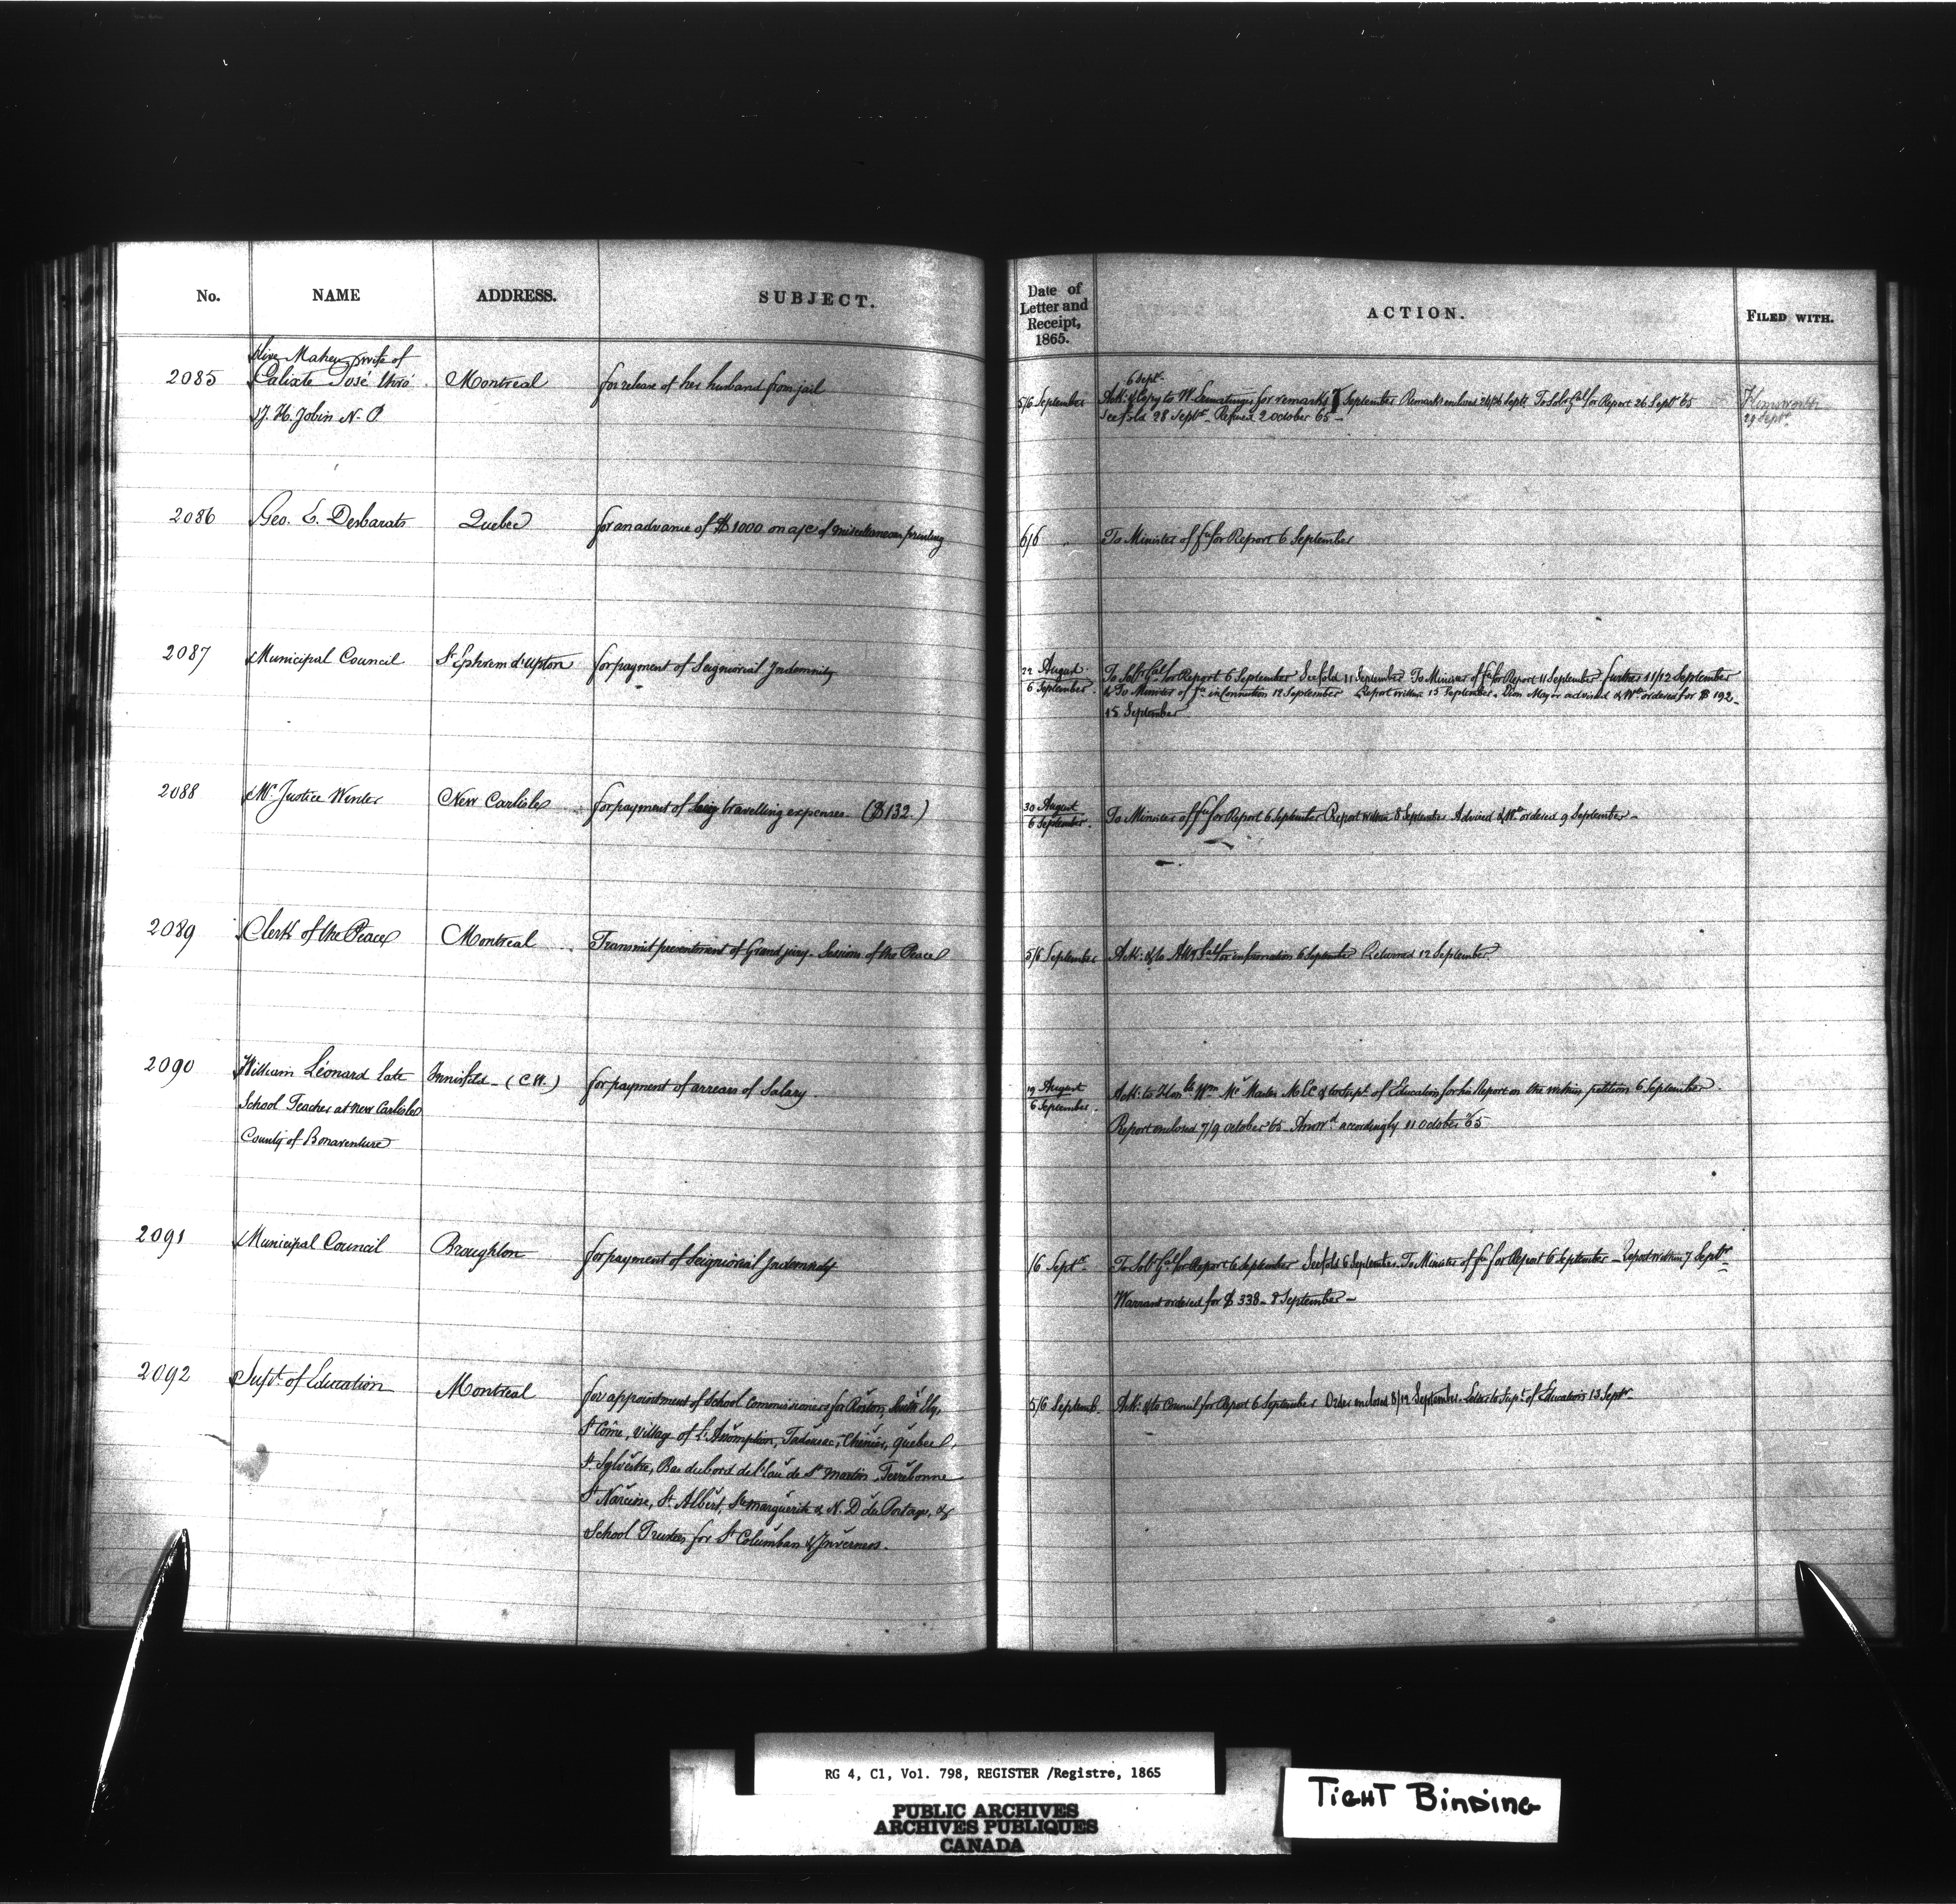 No.
NAME
ADDRESS.
SUBJECT.
Date of
Letter and
Receipt,
1865.
ACTION.
FILED WITH.
2085
Olive Maheu wife of
Calixte José thro'
J. H. Jobin N. P
Montreal
for release of her husband from jail
5/6 September
6 Sept.
Ack: & Copy to for remarks 7 September Remarks enclosed To Sol: Gal for Report 26 Sept 65
See fold 28 Sept. Refused 2 October 65 -
29 Sept.
2086
Geo. E. Desbarats
Quebec
for an advance of $1000 on a/c of miscellaneous printing
6/6 "
To Minister of Fce for Report 6 September
2087
Municipal Council
St Ephrem d'Upton
for payment of Seigniorial Indemnity
22 August
6 September
To Solr Gal for Report 6 September See fold 11 September To Minister of Fce for Report 11 September further 11/12 September
& To Minister of Fce in Connection 12 September Report within 15 September. Mayor advised & Wt ordered for $192 -
15 September
2088
Mr Justice Winter
New Carlisle
for payment of travelling expenses. ($132.)
30 August
6 September.
To Minister of Fce for Report 6 September Report within 8 September Advised & Wt ordered 9 September -
2089
Clerk of the Peace
Montreal
Transmit presentment of Grand jury. Sessions of the Peace
5/6 September
Ack: & to Atty Gal for information 6 September Returned 12 September
2090
William Léonard late
School Teacher at New Carlisle
County of Bonaventure
Innisfil - (C.W.)
for payment of arrears of Salary.
19 August
6 September.
Ack: to Honble Wm Mc Master M.L.C & to Supt. of Education for his Report on the within petition 6 September
Report enclosed 7/9 October 65 Answd. accordingly 11 October 65
2091
Municipal Council
Broughton
for payment of Seigniorial Indemnity
/6 Septr.
To Solr Gal for Report 6 September See fold 6 September. To Minister of Fce for Report 6 September - Report within 7 Septr
Warrant ordered for $338 - 8 September -
2092
Supt. of Education
Montreal
for appointment of School Commissioners for Roxton, South Ely,
St Côme, Village of L'Assomption, Tadousac, Chénier, Quebec,
St Sylvestre, Bas du bord de l'eau de St Martin, Terrebonne
St Narcisse, St Albert, Ste Marguerite & N. D du Portage, &
School Trustees for St Columban & Inverness.
5/6 Septemb.
Ack: & to Council for Report 6 September Order enclosed 8/12 September. Letter to Supt. of Education 13 Septr
RG 4, C1, Vol. 798, REGISTER /Registre, 1865
PUBLIC ARCHIVES
ARCHIVES PUBLIQUES
CANADA
TIGHT BINDING